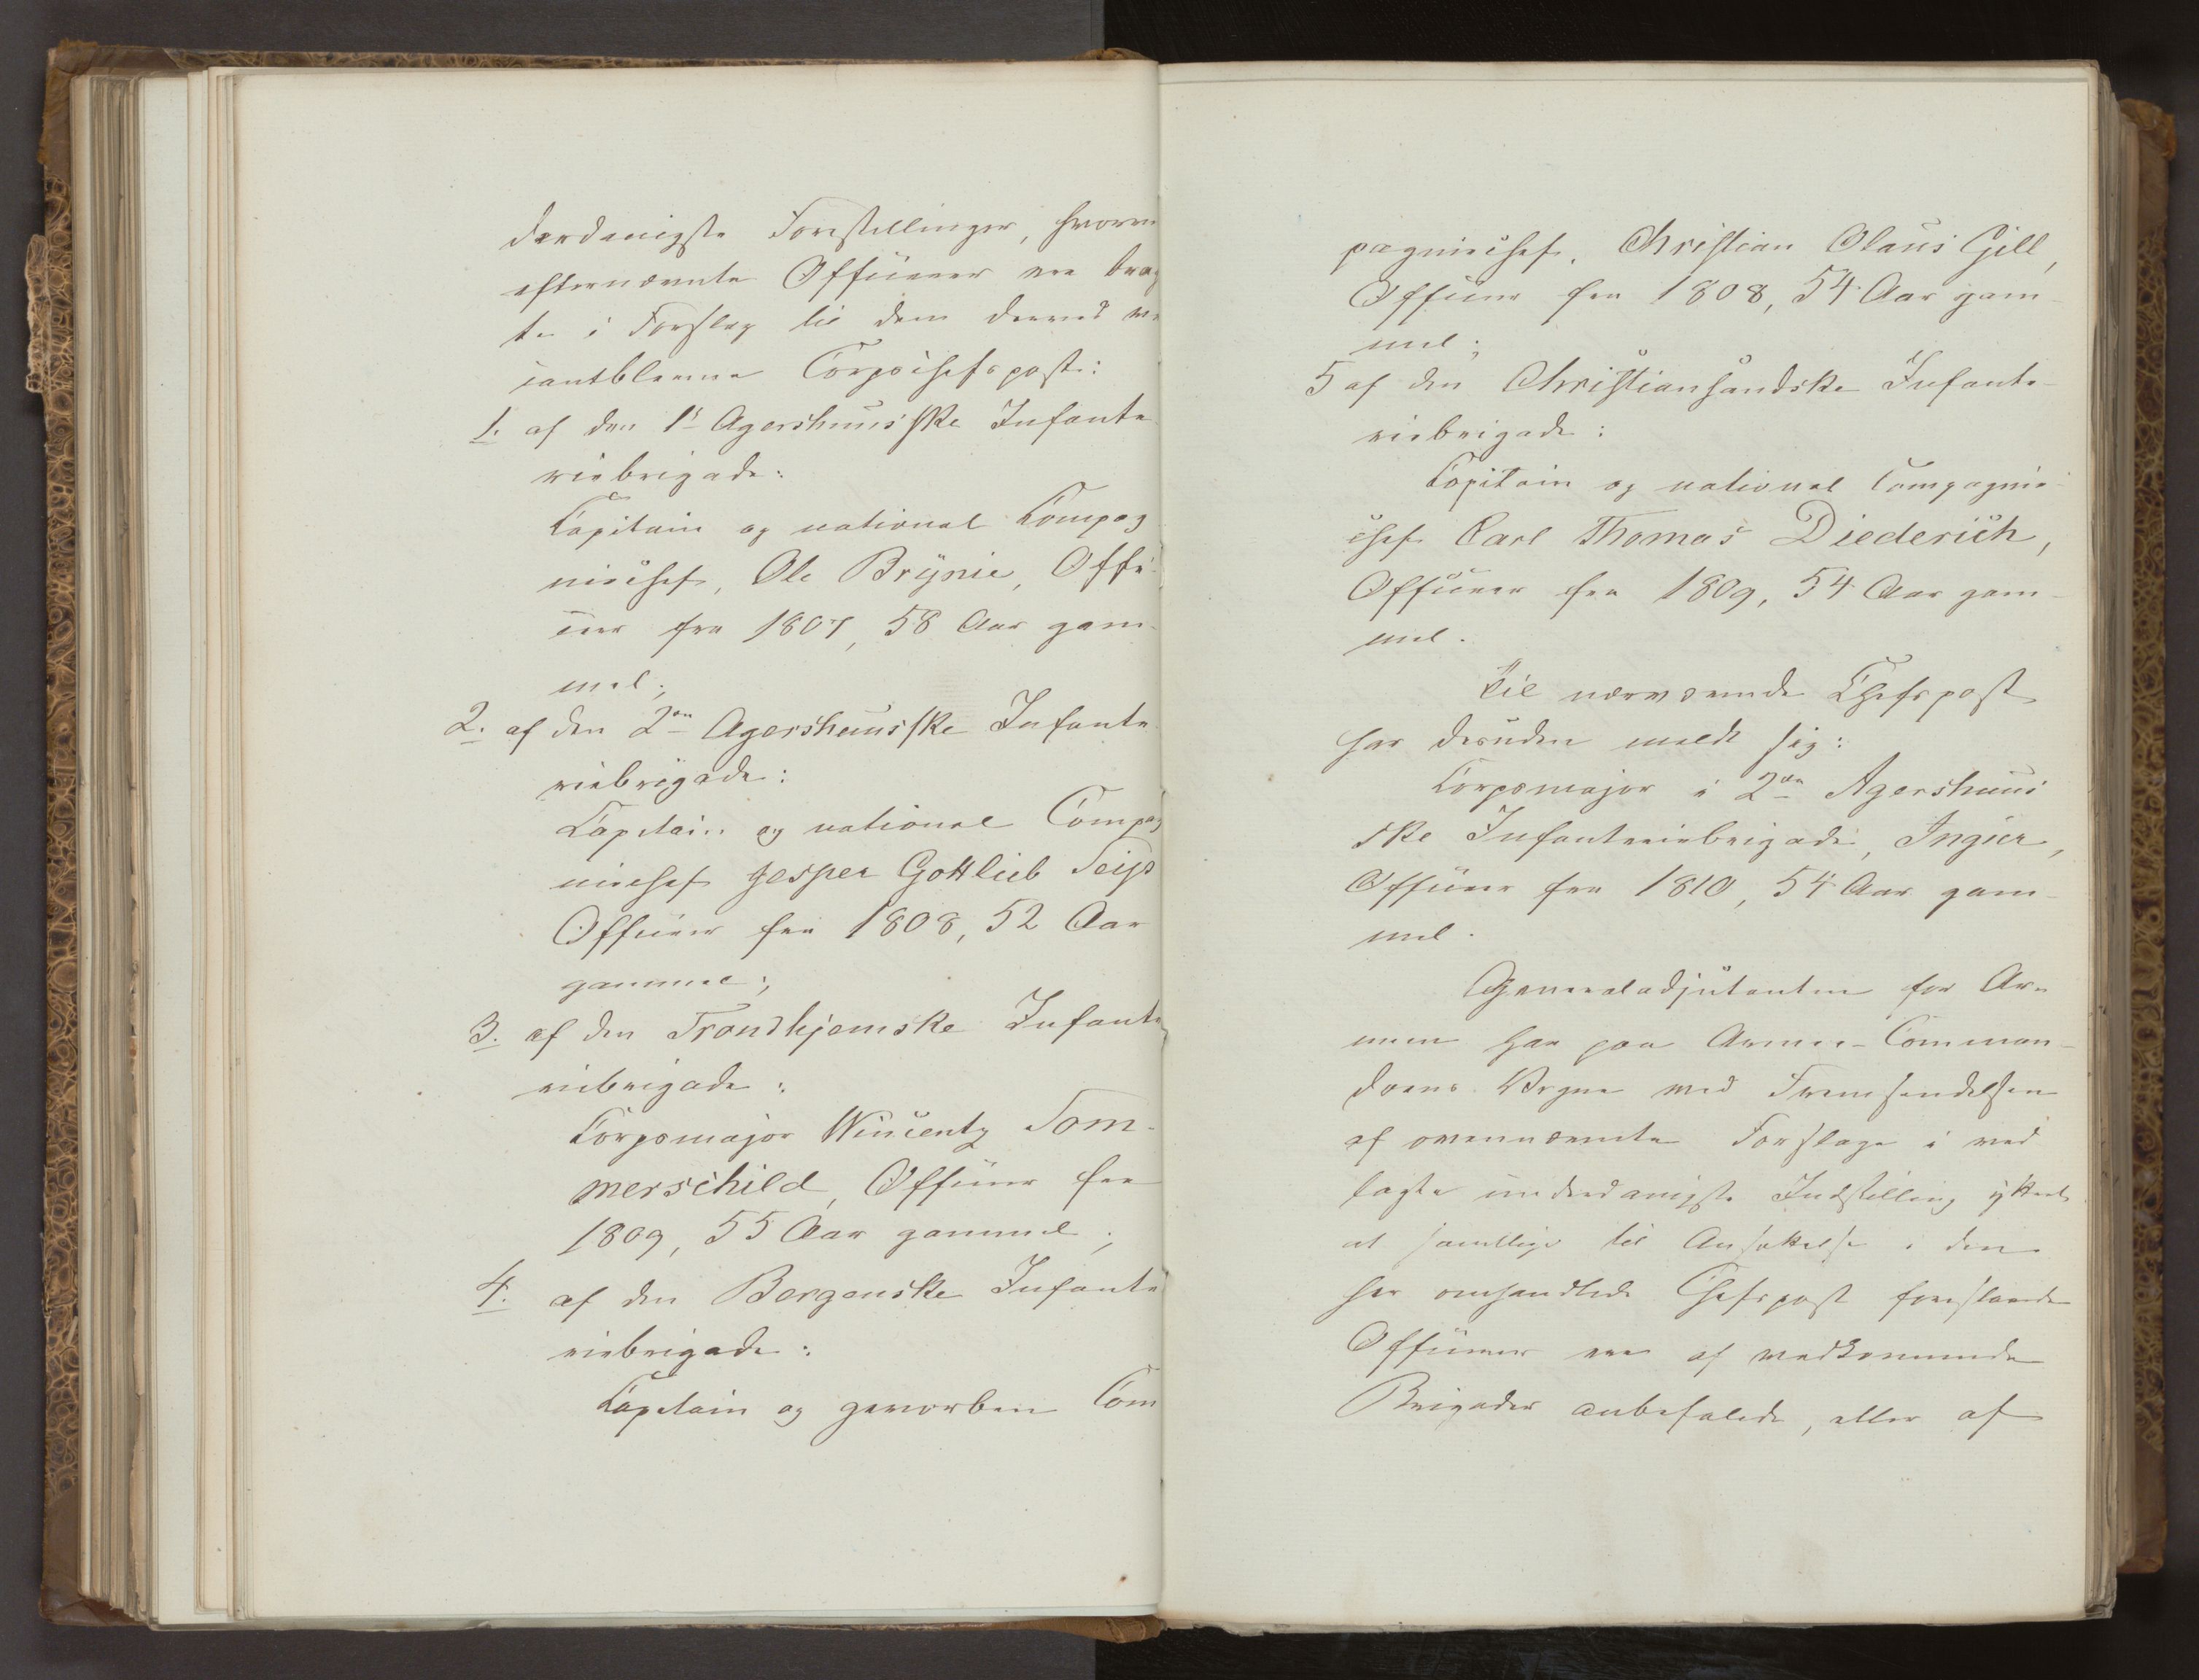 derdanigste Forestillinger, hvorved
efternævnte Officierer ere brag
te i Forslag til den derved va
cantblevne Corpschefspost:
1. af den 1e Agershuusiske Infante
riebrigade:
Capitain og national Compag
niechef, Ole Brynie, Offi-
cier fra 1807, 58 Aar gam-
mel;
2. af den 2den Agershuusiske Infante
riebrigade:
Capitain og national Compag
niechef Jesper Gottlieb Seip
Officier fra 1808, 52 Aar
gammel;
3. af den Trondhjemske Infante
riebrigade:
Corpsmajor Wincentz Som-
merschild, Officier fra
1809, 55 Aar gammel;
4. af den Bergenske Infante
riebrigade:
Capitain og geworben Com
pagniechef, Christian Olaus Gill,
Officier fra 1808, 54 Aar gam-
mel;
5 af den Christiansandske Infante-
riebrigade:
Capitain og national Compagnie-
chef Carl Thomas Diederich,
Officier fra 1809, 54 Aar gam-
mel.
Til nærværende Chefspost
har desuden meldt sig:
Corpsmajor i 2den Agershuusi
ske Infanteriebrigade, Ingier,
Officier fra 1810, 54 Aar gam-
mel.
Generaladjutanten for Ar-
meen har paa Armee-Comman-
doens Vegne ved Fremsendelsen
af ovennævnte Forslage i ved
lagte underdanigste Indstilling yttret
at samtlige til Ansættelse i den
her omhandlede Chefspost foreslaaede
Officierer ere af vedkommende
Brigader anbefalede, eller af